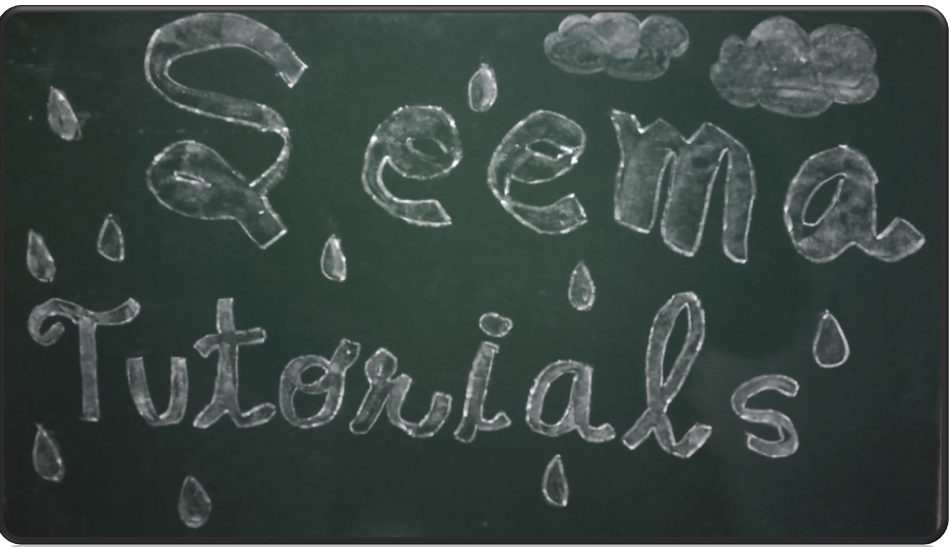 Seema
Tutorials